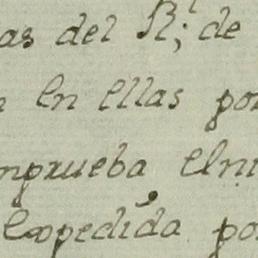 as del Rl; de
n en ellas por
mprueba elni
Expedida por